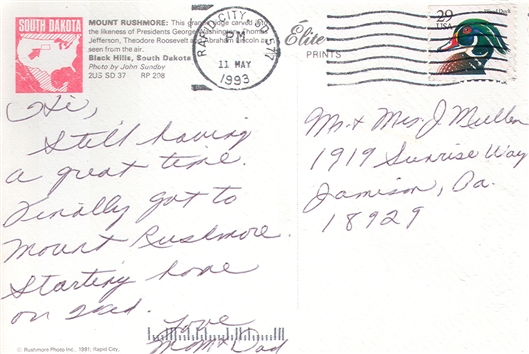 SOUTH DAKOTA
MOUNT RUSHMORE: This granite ledge carved
the likeness of Presidents George Washington, Thomas
Jefferson, Theodore Roosevelt and Abraham Lincoln as
seen from the air.
Black Hills, South Dakota
Photo by John Sundby
2US SD 37 RP 208
RAPID CITY, SD 577
PM
11 MAY
1993
Elite
PRINTS
29
USA
Wood Duck
Hi,
Still having
a great time.
Finally got to
Mount Rushmore.
Starting home
on 2nd.
Love
Mom & Dad
Mr. & Mrs. J. Mullen
1919 Sunrise Way
Jamison, Pa.
18929
© Rushmore Photo Inc., 1991; Rapid City,